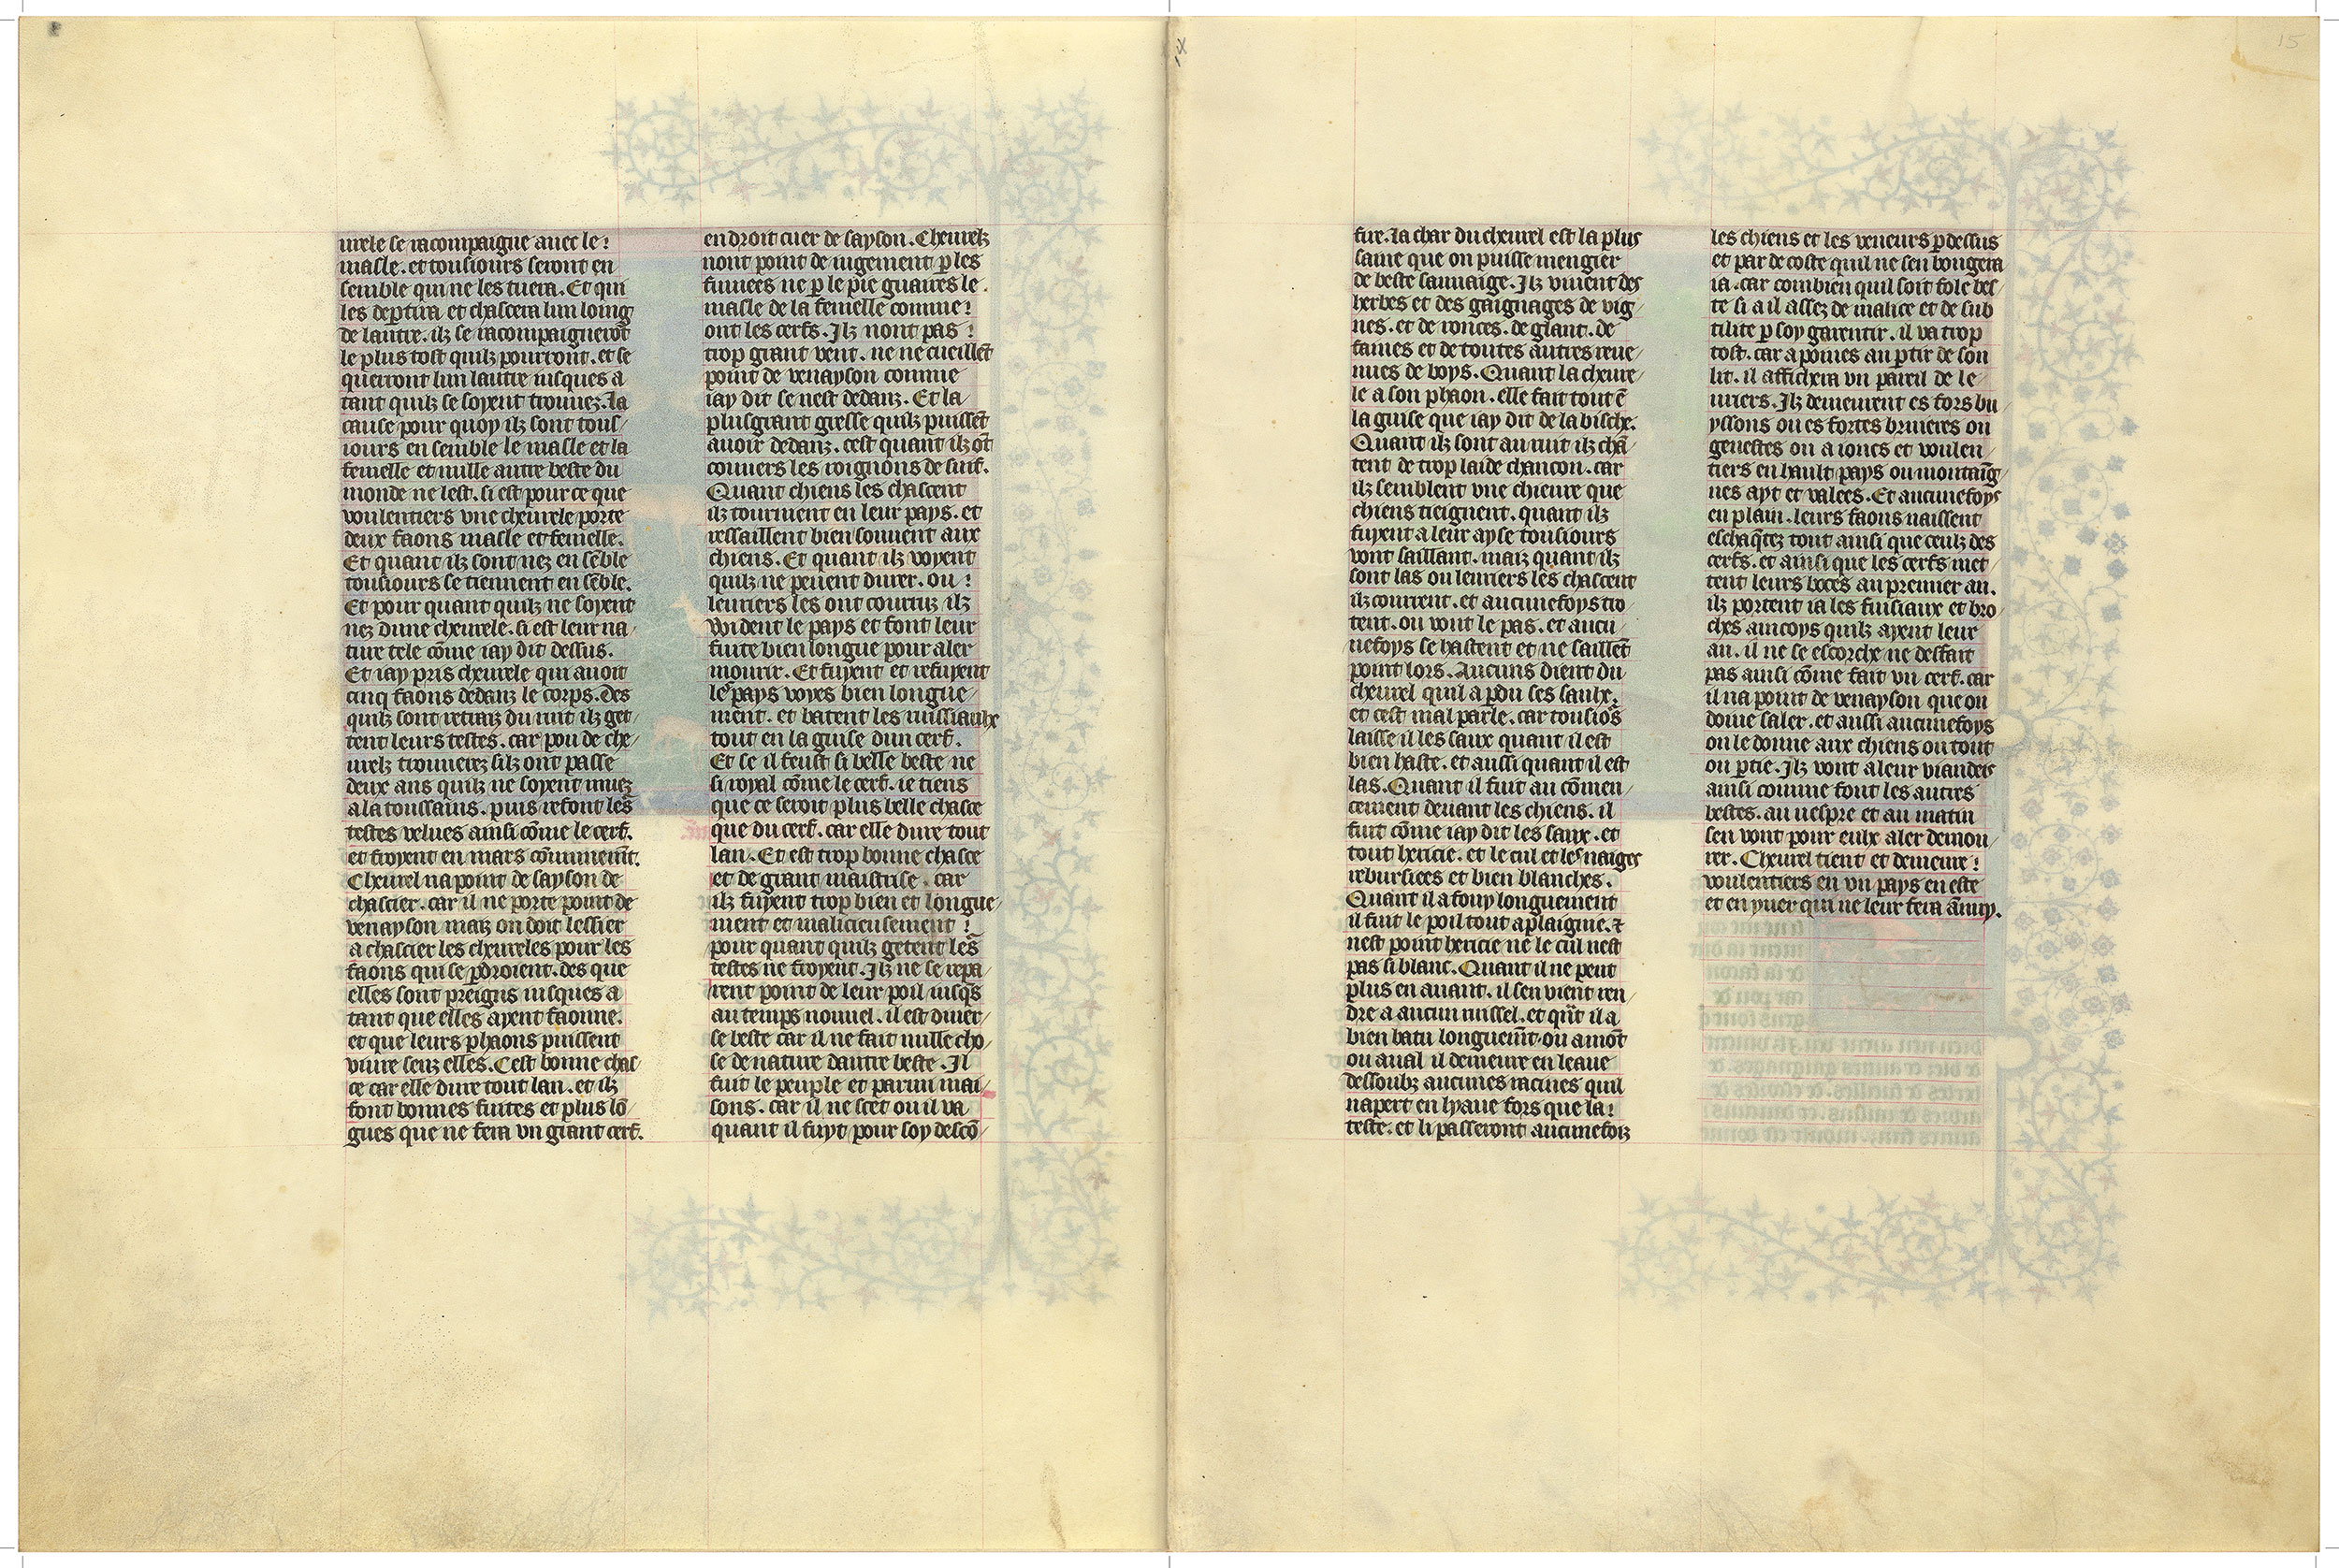 urele se racompaigne auec le
masle. et tousiours seront en
semble qui ne les tuera. Et qui
les deptira et chascera lun loing
de lautre. ilz se racompaignerot
le plus tost quilz pourront. et se
querront lun lautre iusques a
tant quilz se soyent trouuez. la
cause pour quoy ilz sont tous/
iours en semble le masle et la
femelle et nulle autre beste du
monde ne lest. si est pour ce que
voulentiers vne cheurele porte
deux faons masle et femelle.
Et quant ilz sont nez en sēble
tousiours se tiennent en sēble.
Et pour quant quilz ne soyent
nez dune cheurele. si est leur na/
ture tele cōme iay dit dessus.
Et iay pris cheurele qui auoit
cinq faons dedanz le corps. des
quilz sont retraiz du ruit ilz get/
tent leurs testes. car pou de che/
urelz trouuerez silz ont passe
deux ans quilz ne soyent muez
a la toussains. puis refont les
testes velues ainsi cōme le cerf.
et froyent en mars cōmunemēt.
Cheurel na point de sayson de
chascier. car il ne porte point de
venayson maiz on doit lessier
a chascier les cheureles pour les
faons qui se pdroient. des que
elles sont preigns iusques a
tant que elles ayent faonne.
et que leurs phaons puissent
viure senz elles. Cest bonne chas/
ce car elle dure tout lan. et ilz
font bonnes fuites et plus lō/
gues que ne fera vn grant cerf.
en droit cuer de sayson. Cheurelz
nont point de iugement p les
fumees ne p le pie guaires le
masle de la femelle comme
ont les cerfs. Ilz nont pas
trop grant vent. ne ne cueillēt
point de venayson comme
iay dit se nest dedanz. Et la
plusgrant gresse quilz puissēt
auoir dedanz. cest quant ilz ōt
couuers les roignons de suif.
Quant chiens les chascent
ilz tournient en leur pays. et
ressaillent bien souuent aux
chiens. Et quant ilz voyent
quilz ne peuent durer. ou
leuriers les ont couruz ilz
vvident le pays et font leur
fuite bien longue pour aler
mourir. Et fuyent et refuyent
le pays voyes bien longue/
ment. et batent les ruissiaulx
tout en la guise dun cerf.
Et se il feust si belle beste ne
si royal cōme le cerf. ie tiens
que ce seroit plus belle chasce
que du cerf. car elle dure tout
lan. Et est trop bonne chasce
et de grant maistrise. car
ilz fuyent trop bien et longue/
ment et malicieusement
pour quant quilz getent les
testes ne froyent. Ilz ne se repa/
rent point de leur poil iusqs
au temps nouuel. il est diuer/
se beste car il ne fait nulle cho/
se de nature dautre beste. Il
fuit le peuple et parmi mai/
sons. car il ne scet ou il va
quant il fuyt pour soy descō/
15
fire. la char du cheurel est la plus
saine que on puisse mengier
de beste sauuaige. Ilz viuent des
herbes et des gaignages de vig/
nes. et de ronces. de glant. de
faines et de toutes autres reue/
nues de boys. Quant la cheure/
le a son phaon. elle fait tout ē
la guise que iay dit de la bische.
Quant ilz sont au ruit ilz chā/
tent de trop laide chancon. car
ilz semblent vne chieure que
chiens tieignent. quant ilz
fuyent a leur ayse tousiours
vont saillant. maiz quant ilz
sont las ou leuriers les chascent
ilz courrent. et aucunefoys tro/
tent. ou vont le pas. et aucu/
nefoys se hastent et ne saillēt
point lors. Aucuns dient du
cheurel quil a pdu ses saulx.
et cest mal parle. car tousiōs
laisse il les saux quant il est
bien haste. et aussi quant il est
las. Quant il fuit au cōmen/
cement deuant les chiens. il
fuit cōme iay dit les saux. et
tout hericie. et le cul et les naiges
rebursiees et bien blanches.
Quant il a fouy longuement
il fuit le poil tout aplaignie. ⁊
nest point hericie ne le cul nest
pas si blanc. Quant il ne peut
plus en auant. il sen vient ren/
dre a aucun ruissel. et qūt il a
bien batu longuemēt. ou amōt
ou aual il demeure en leaue
dessoubz aucunes racines quil
napert en lyaue fors que la
teste. et li passeront aucunefoiz
les chiens et les veneurs pdessus
et par de coste quil ne sen bougera
ia. car combien quil soit fole bes/
te si a il assez de malice et de sub
tilite p soy garentir. il va trop
tost. car a poines au ptir de son
lit. il affichera vn pareil de le/
uriers. Ilz demeurent es fors bu/
yssons ou es fortes bruieres ou
genestes ou a ioncs et voulen/
tiers en hault pays ou montaig/
nes ayt et valees. Et aucunefoys
en plain. leurs faons naissent
eschaqtez tout ainsi que ceulz des
cerfs. et ainsi que les cerfs met
tent leurs boces au premier an.
ilz portent ia les fuisiaux et bro/
ches aincoys quilz ayent leur
an. il ne se escorche ne desfait
pas ainsi cōme fait vn cerf. car
il na point de venayson que on
doiue saler. et aussi aucunefoys
on le donne aux chiens ou tout
ou ptie. Ilz vont a leur viandeis
ainsi comme font les autres
bestes. au vespre et au matin
sen vont pour eulx aler demou/
rer. Cheurel tient et demeure
voulentiers en vn pays en este
et en yuer qui ne leur fera ānuy.